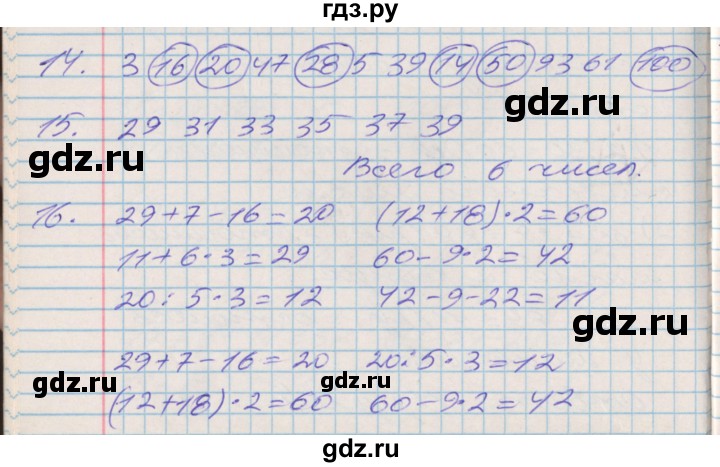 гдз.ру
14. 3 16 20 47 28 5 39 14 50 93 61 100
gdz.ru
15. 29 31 33 35 37 39
gdz.ru
Всего 6 чисел.
16. 29+7-16=20 (12+18)·2=60
11+6·3=29 60-9·2=42
20:5·3=12 42-9-22=11
gdz.ru
gdz.ru
29+7-16=20 20:5·3=12
(12+18)·2=60 60-9·2=42
gdz.ru
gdz.ru
gdz.ru